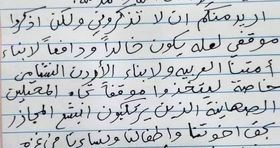 اريد منكم ان لا تذكروني ولكن اذكروا
موقفي لعله يكون خالداً ودافعاً لابناء
أمتينا العربيه ولابناء الأردن النشامى
خاصة ليتخذوا موقفاً تجاه المحتلين
الصهاينة الذين يرتكبون ابشع المجازر
بحق اخوتنا واطفالنا ونساءنا في غزة